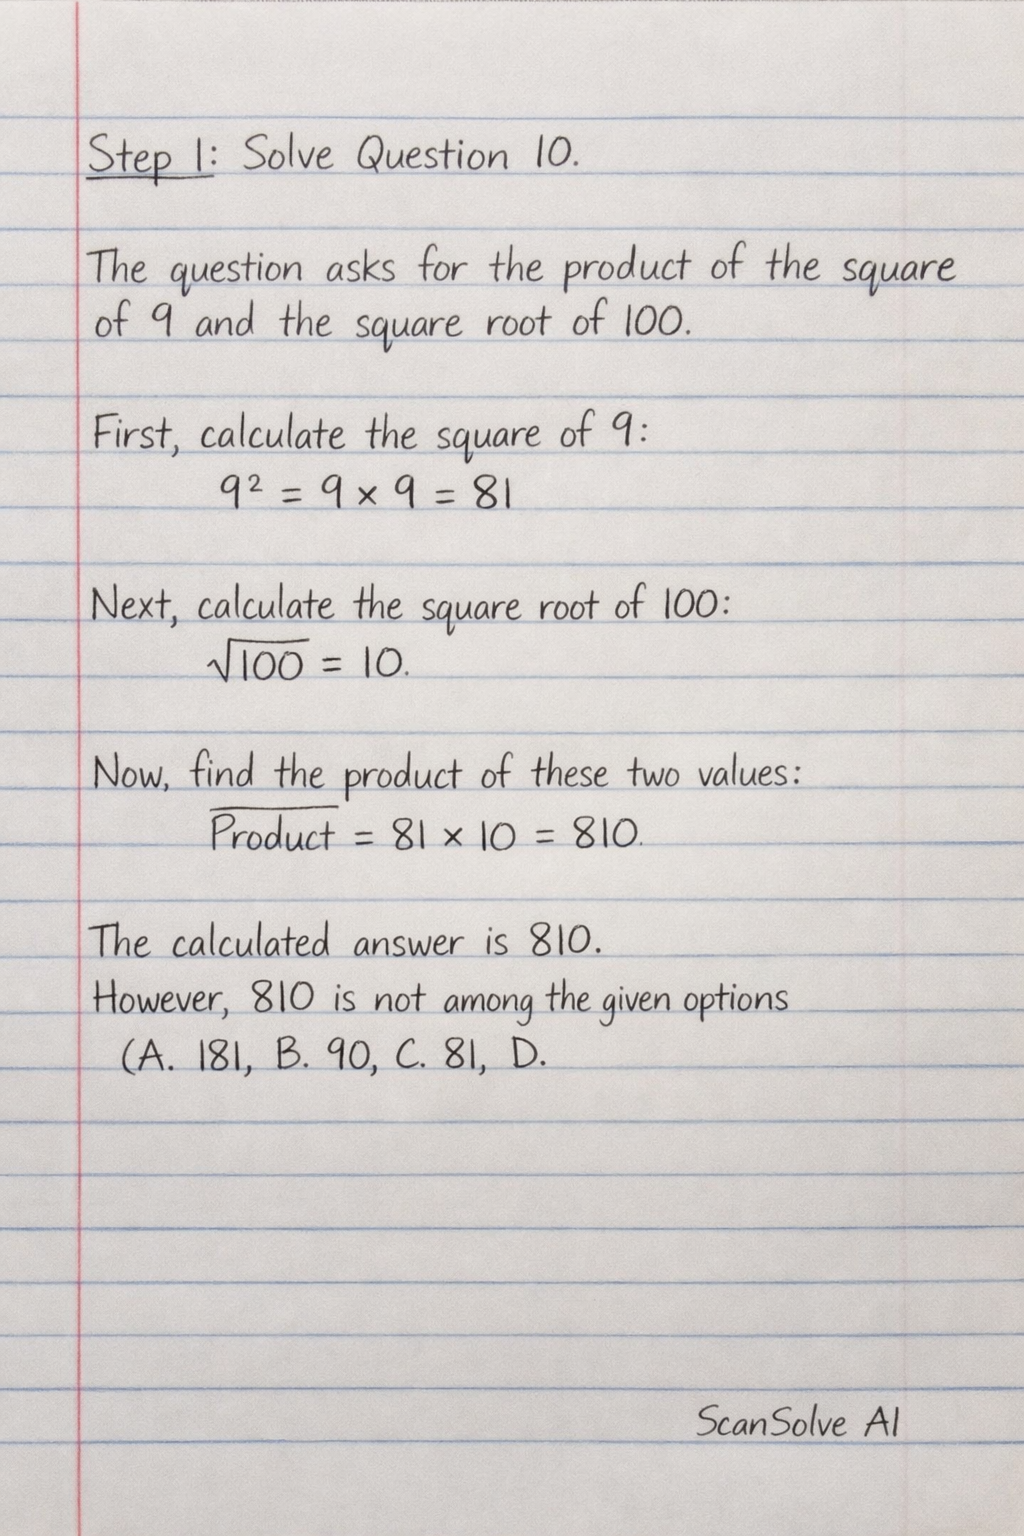 Step 1: Solve Question 10.
The question asks for the product of the square
of 9 and the square root of 100.
First, calculate the square of 9:
9² = 9 × 9 = 81
Next, calculate the square root of 100:
√100 = 10.
Now, find the product of these two values:
Product = 81 × 10 = 810.
The calculated answer is 810.
However, 810 is not among the given options
(A. 181, B. 90, C. 81, D.
ScanSolve AI